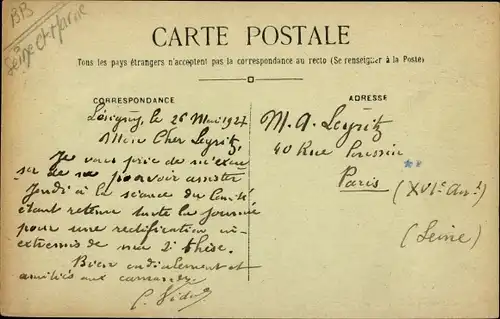 BB
Seine et Marne
CARTE POSTALE
Tous les pays étrangers n'acceptent pas la correspondance au recto (Se renseigner à la Poste)
CORRESPONDANCE
Lésigny, le 26 Mai 1927
Mon Cher Leyritz,
Je vous prie de m'excu
ser de ne pouvoir assister
jeudi à la séance du Comité
étant retenu toute la journée
pour une rectification in-
extremis de ma 2e thèse.
Bien cordialement et
amitiés aux camarades
ADRESSE
M. A. Leyritz
40 Rue Poussin
Paris (XVIe Arrt)
(Seine)